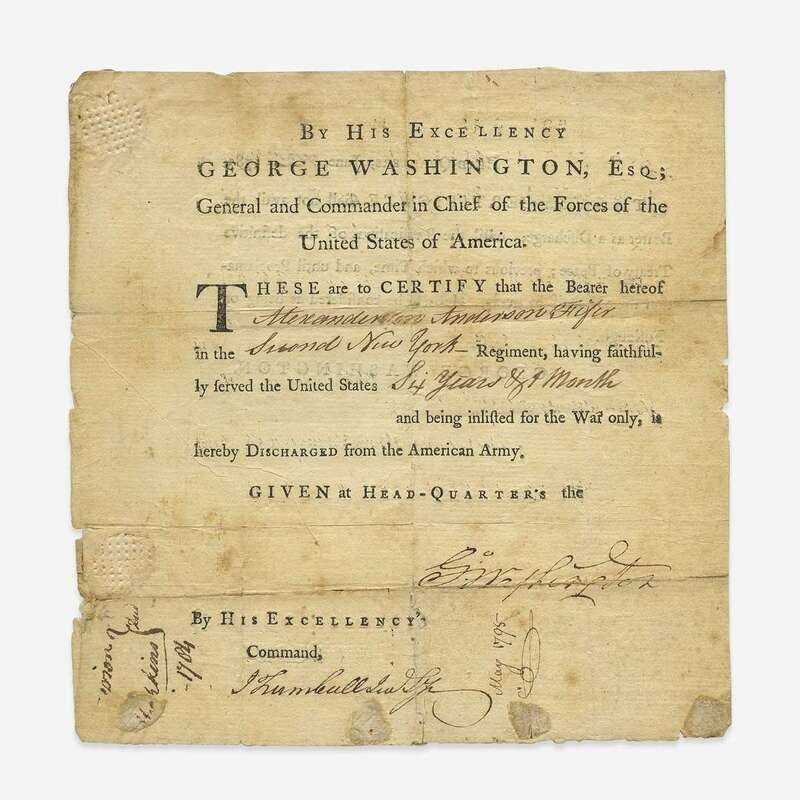 By His Excellency
GEORGE WASHINGTON, Esq;
General and Commander in Chief of the Forces of the
United States of America.
THESE are to CERTIFY that the Bearer hereof
Anderson Fifer
in the Second New York Regiment, having faithful-
ly ſerved the United States Six Years & Month
and being inliſted for the War only, is
hereby Discharged from the American Army.
GIVEN at Head-Quarters the
G:Washington
By His Excellency's
Command,
J Trumbull Jun
May 1795